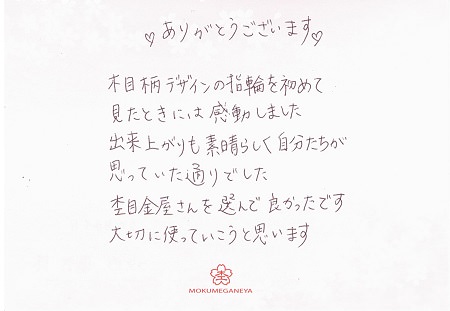 ありがとうございます
木目柄デザインの指輪を初めて
見たときには感動しました
出来上がりも素晴らしく自分たちが
思っていた通りでした
杢目金屋さんを選んで良かったです
大切に使っていこうと思います
MOKUMEGANEYA